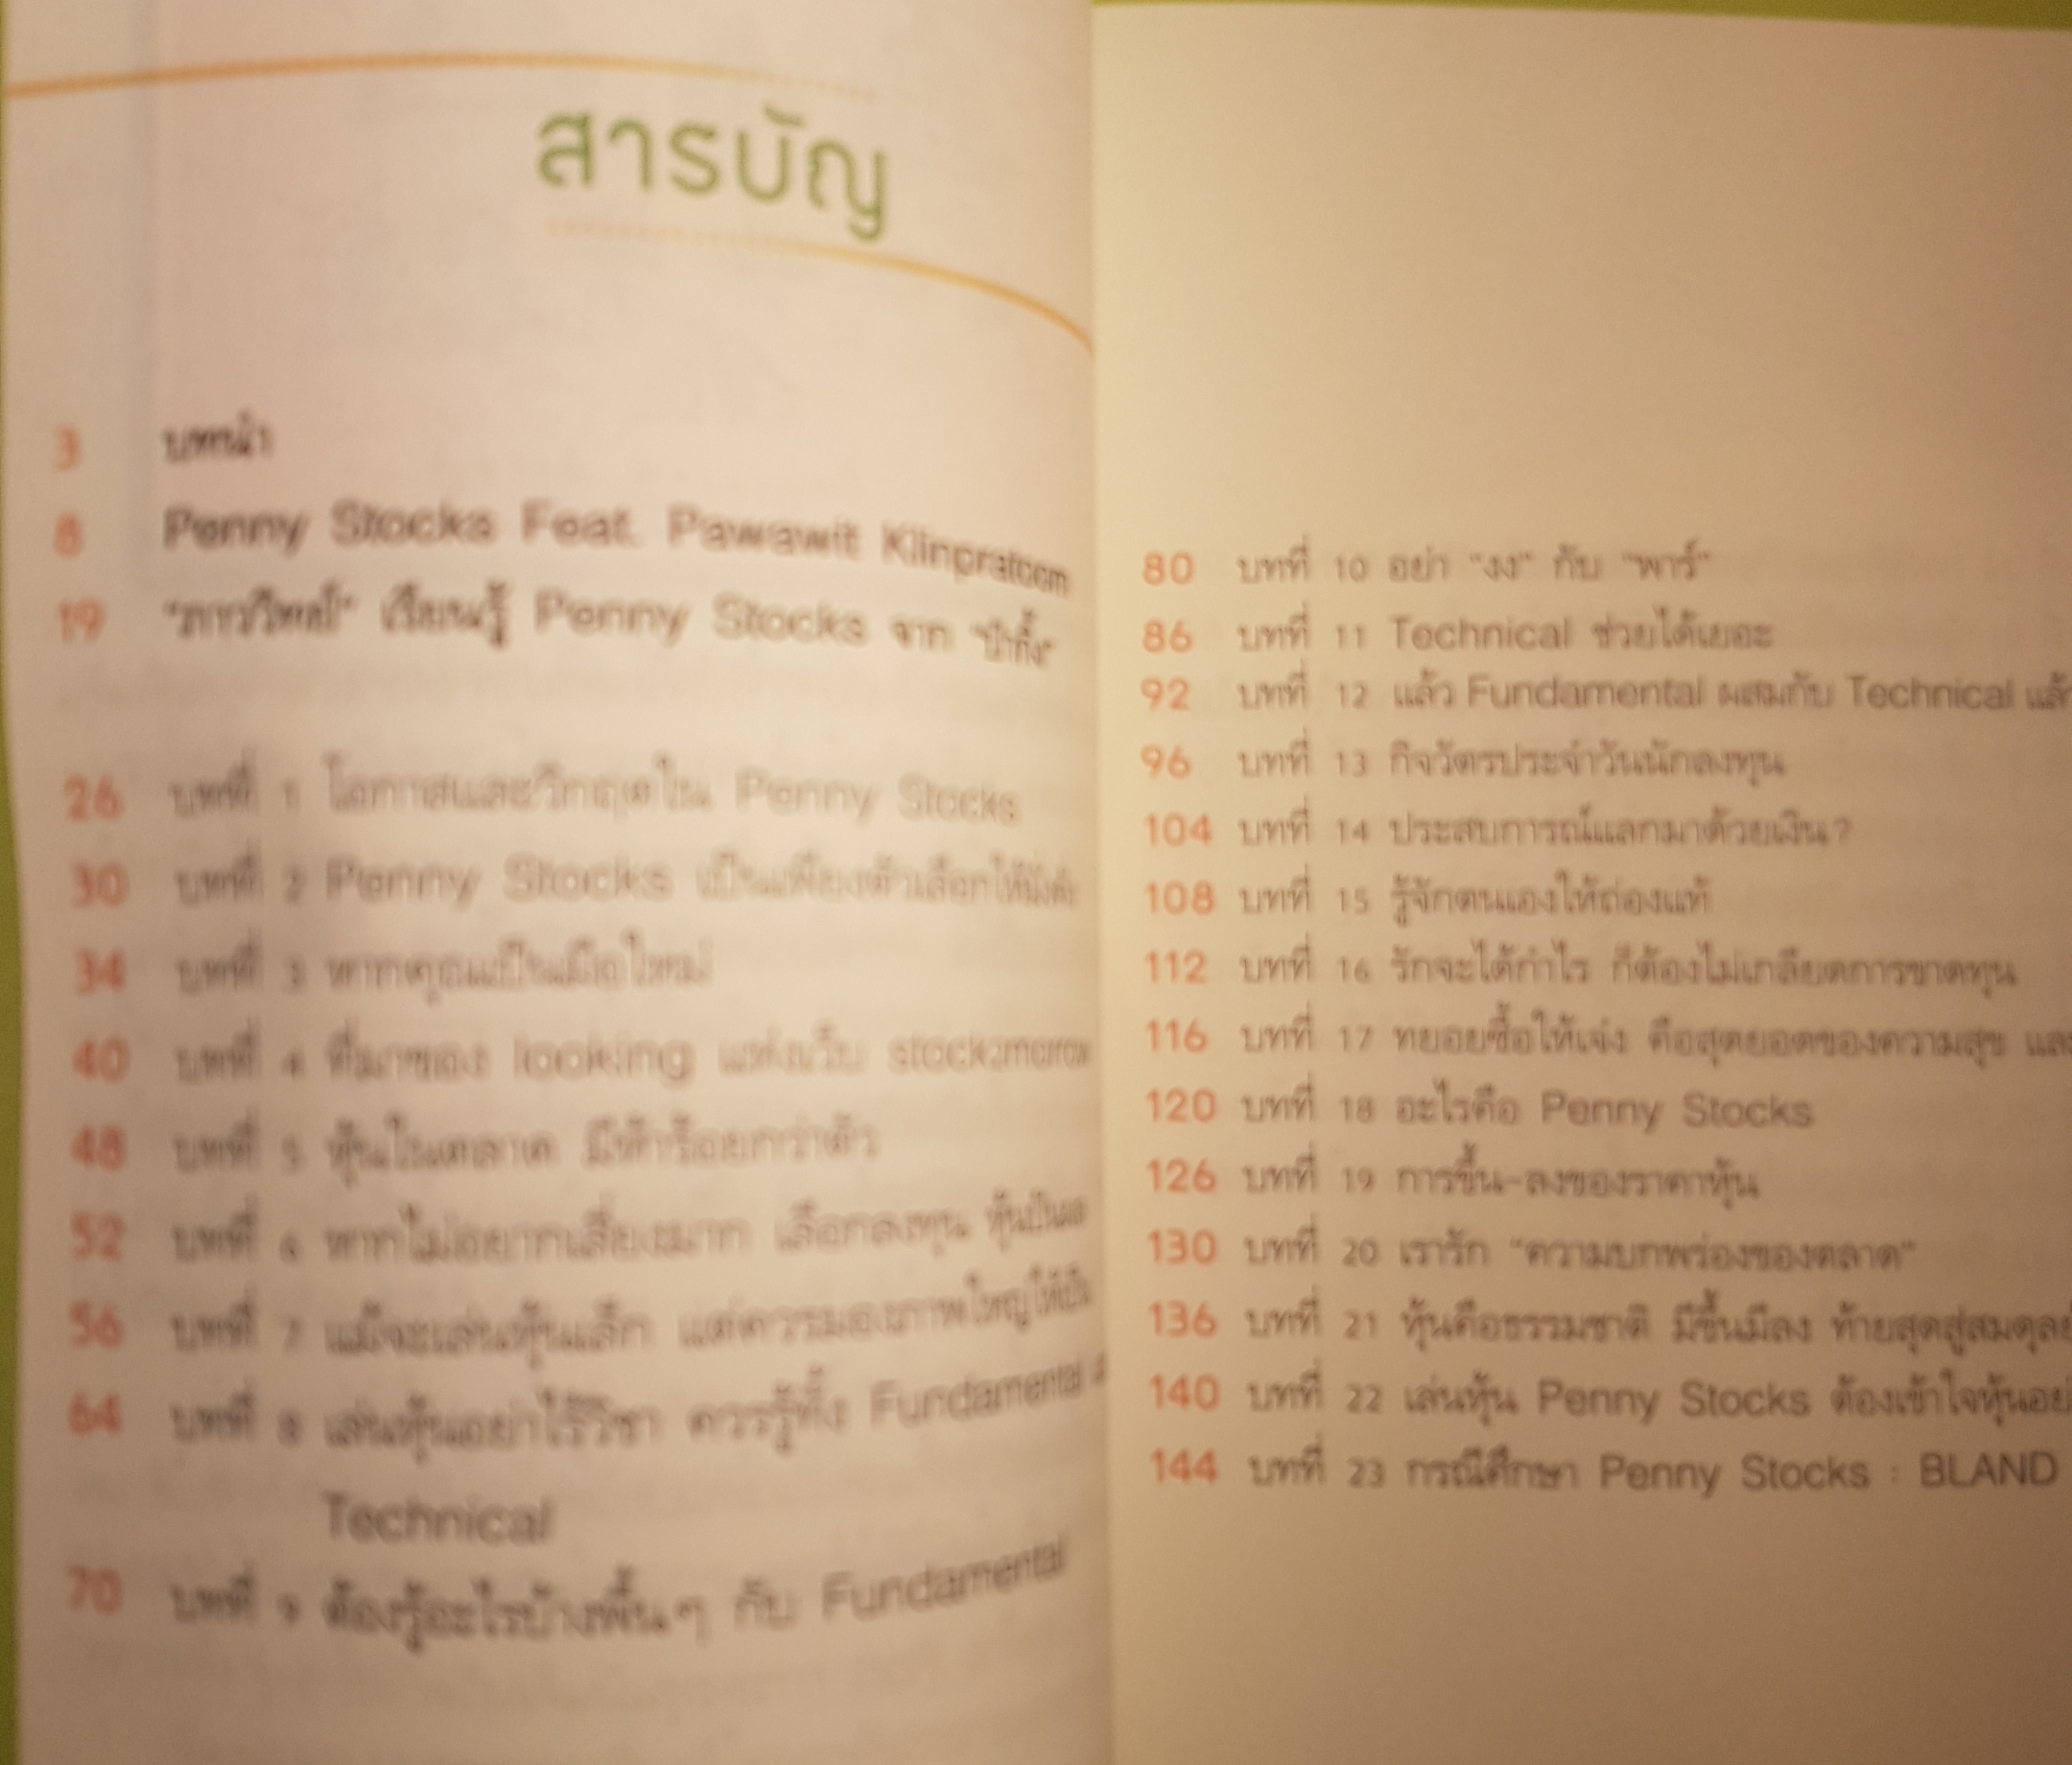 สารบัญ
3 บทนำ
8 Penny Stocks Feat. Pawawit Klinpratoom
19 "ภาววิทย์" เรียนรู้ Penny Stocks จาก
26 บทที่ 1 โอกาสและวิกฤตใน Penny Stocks
30 บทที่ 2 Penny Stocks เป็นเพียงตัวเลือกให้
34 บทที่ 3 หากคุณเป็นมือใหม่
40 บทที่ 4 ที่มาของ looking แห่งเว็บ
48 บทที่ 5 หุ้นในตลาด มีห้าร้อยกว่าตัว
52 บทที่ 6 หากไม่อยากเสี่ยงมาก เลือกลงทุน หุ้นปันผล
56 บทที่ 7 แม้จะเล่นหุ้นเล็ก แต่ควรมองภาพใหญ่ให้เป็น
64 บทที่ 8 เล่นหุ้นอย่าไร้วิชา ควรรู้ทั้ง Fundamental
Technical
70 บทที่ 9 ต้องรู้อะไรบ้างพื้นๆ กับ Fundamental
80 บทที่ 10 อย่า "งง" กับ "พาร์"
86 บทที่ 11 Technical ช่วยได้เยอะ
92 บทที่ 12 แล้ว Fundamental ผสมกับ Technical
96 บทที่ 13 กิจวัตรประจำวันนักลงทุน
104 บทที่ 14 ประสบการณ์แลกมาด้วยเงิน?
108 บทที่ 15 รู้จักตนเองให้ถ่องแท้
112 บทที่ 16 รักจะได้กำไร ก็ต้องไม่เกลียดการขาดทุน
116 บทที่ 17 ทยอยซื้อให้เจ๋ง คือสุดยอดของความสุข
120 บทที่ 18 อะไรคือ Penny Stocks
126 บทที่ 19 การขึ้น-ลงของราคาหุ้น
130 บทที่ 20 เรารัก "ความบกพร่องของตลาด"
136 บทที่ 21 หุ้นคือธรรมชาติ มีขึ้นมีลง ท้ายสุดสู่สมดุล
140 บทที่ 22 เล่นหุ้น Penny Stocks ต้องเข้าใจหุ้น
144 บทที่ 23 กรณีศึกษา Penny Stocks : BLAND